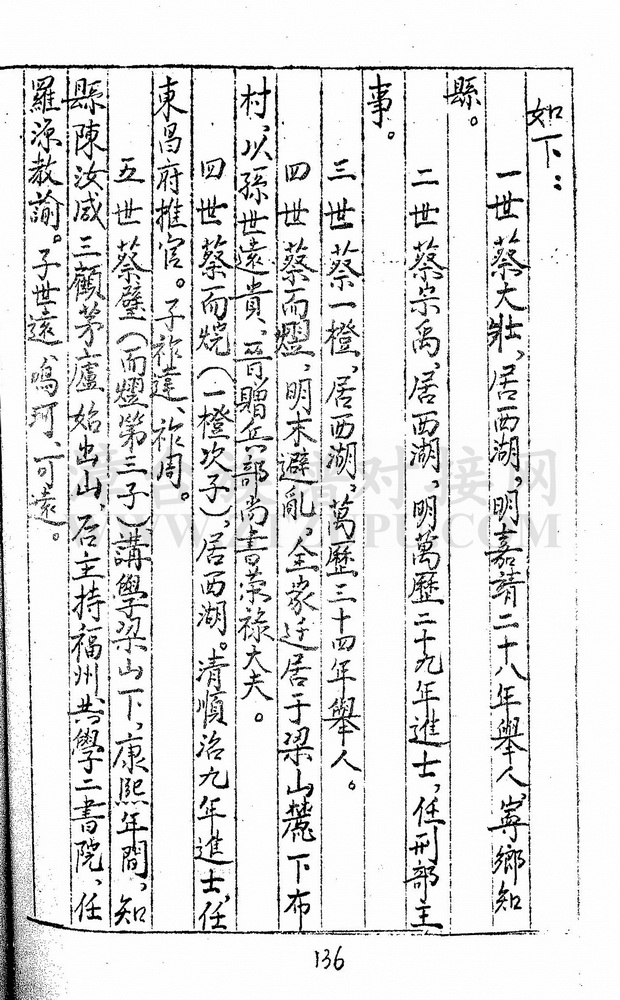 如下：
一世蔡大壯、居西湖，明嘉靖二十八年舉人，寧鄉知
縣。
二世蔡宗禹、居西湖，明萬歷二十九年進士，任刑部主
事。
三世蔡一橙，居西湖，萬歷三十四年舉人。
四世蔡而熠，明末避亂，全家迁居于梁山麓下布
村，以孫世遠貴，晉贈兵部尚書荣祿大夫。
四世蔡而烷（一橙次子），居西湖。清順治九年進士，任
東昌府推官。子祚達、祚周。
五世蔡璧（而熠第三子）講學梁山下，康熙年間，知
縣陳汝咸三顧茅廬始出山，后主持福州共學二書院，任
羅源教諭。子世遠、鳴珂、可遠。
漳台族谱对接网
WWW.ZTZUPU.COM
136